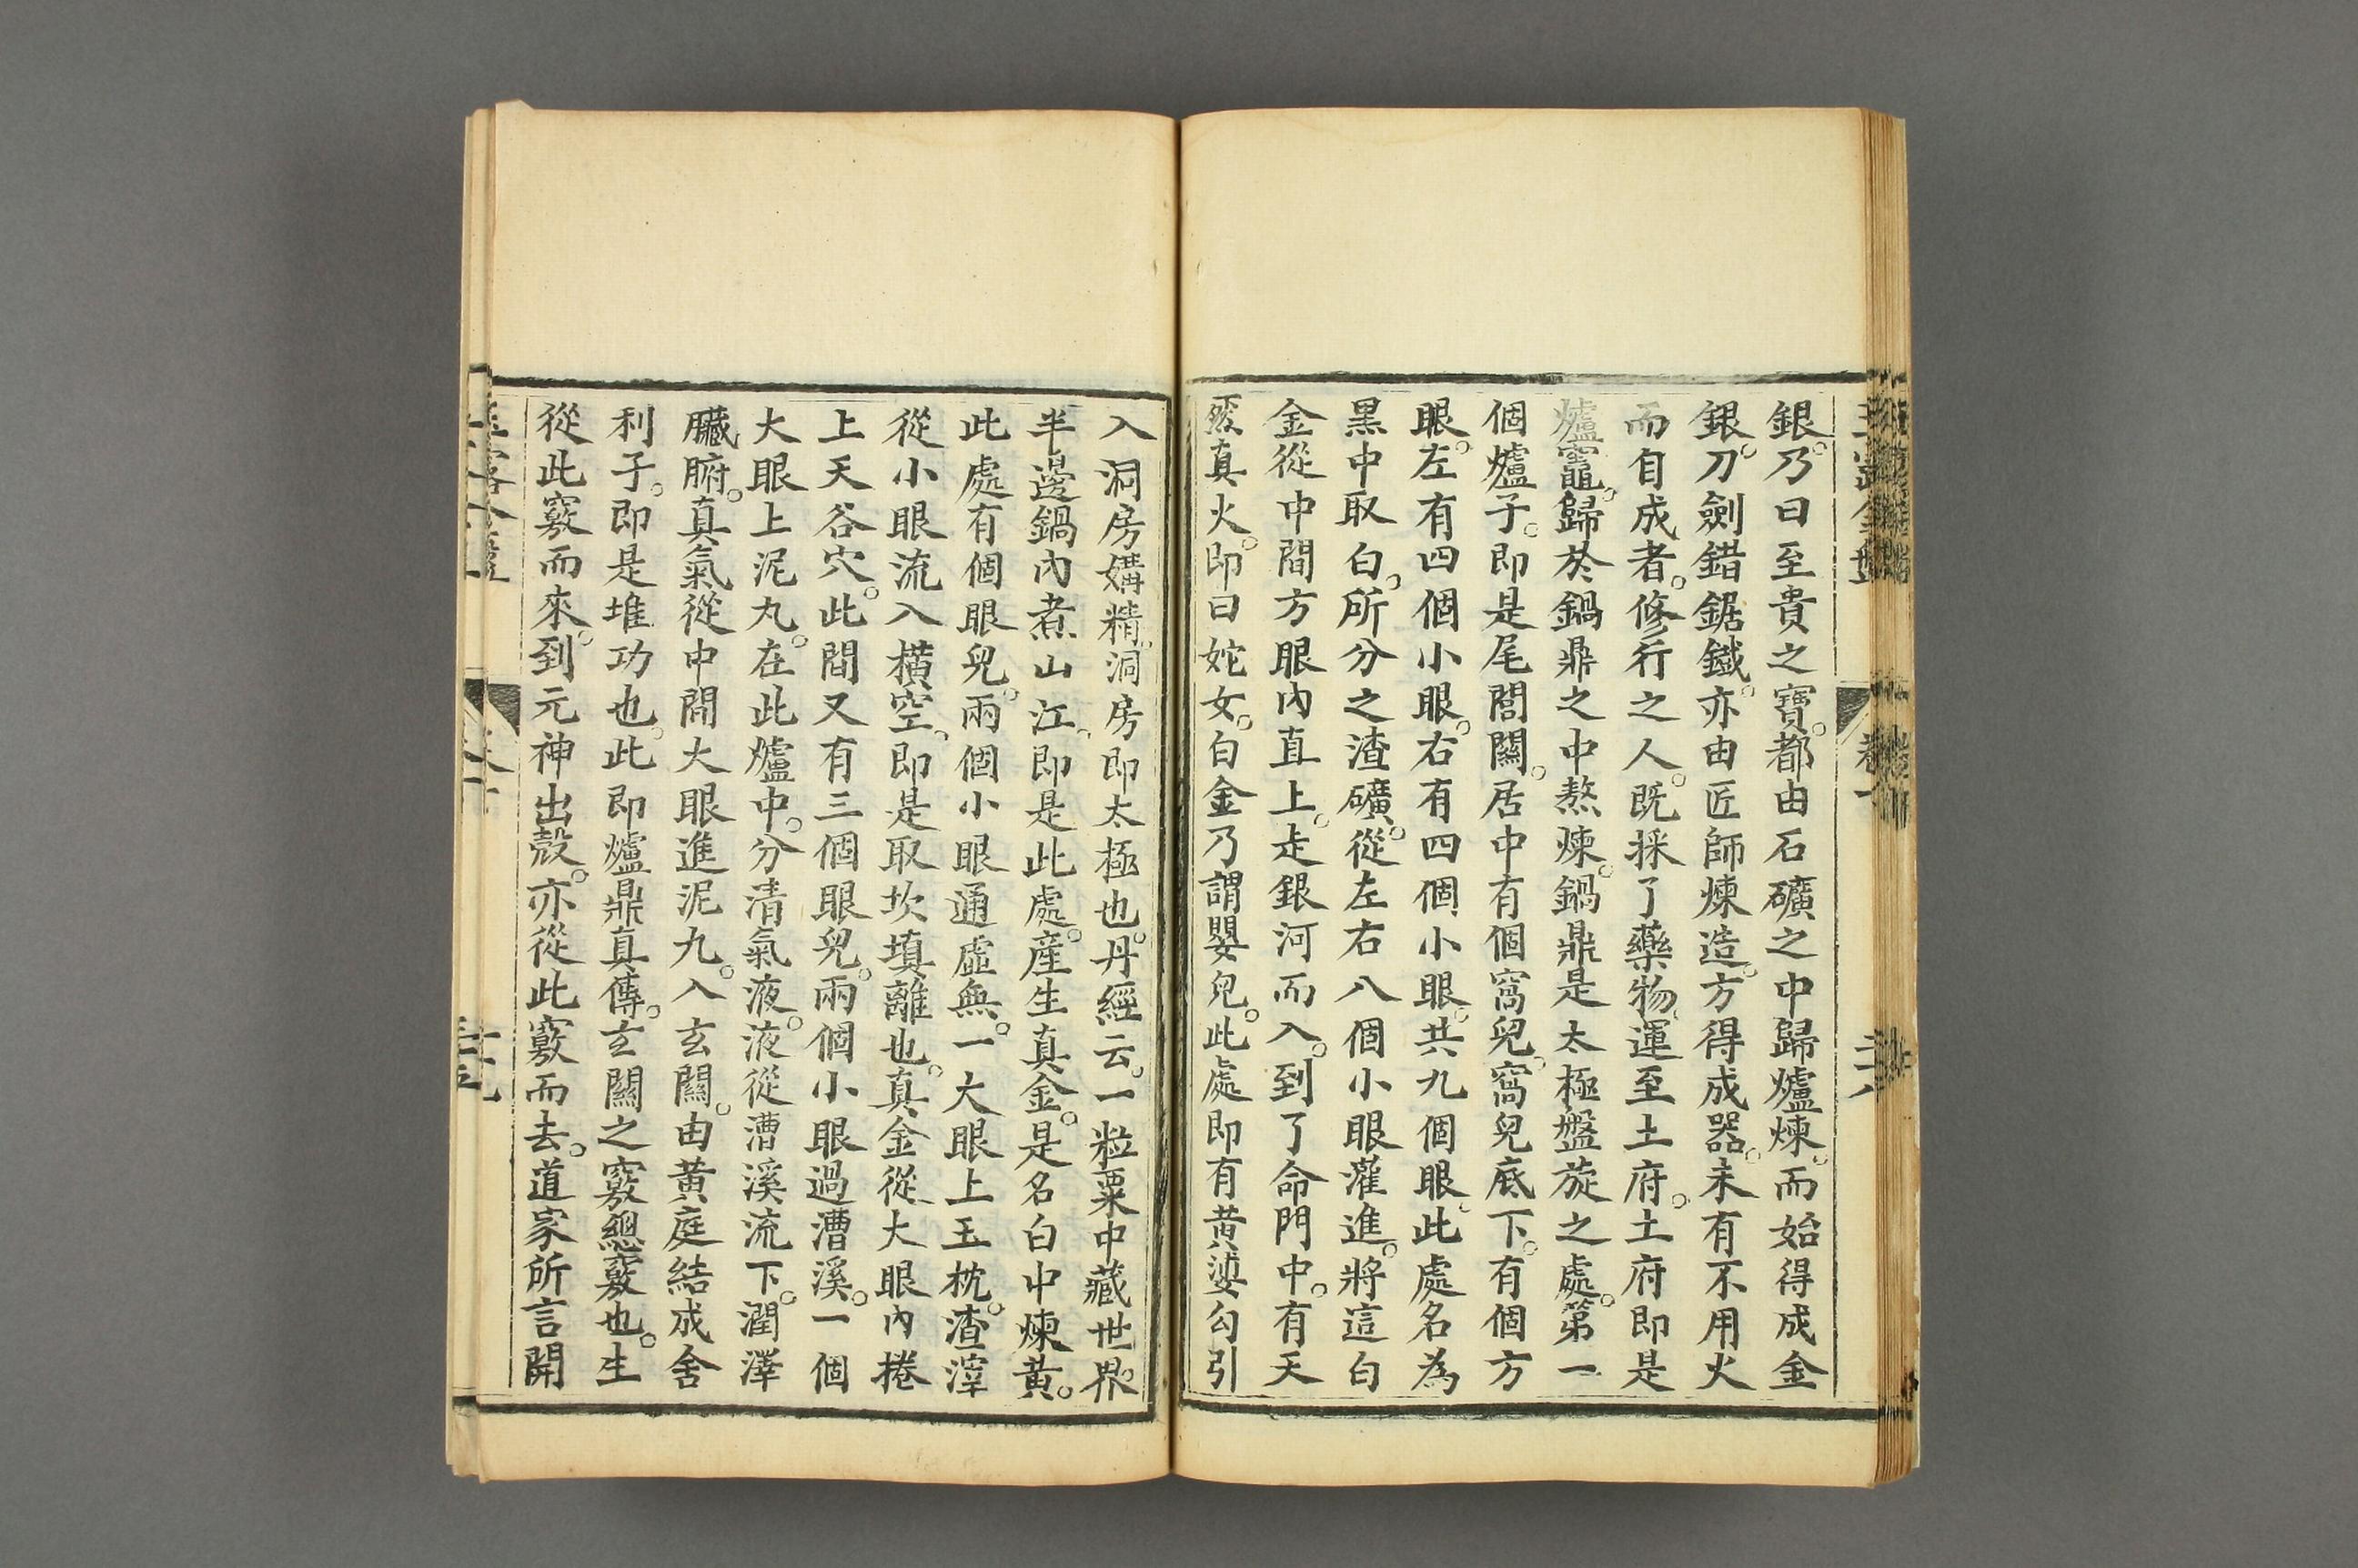 銀。乃曰至貴之寶。都由石礦之中歸爐煉。而始得成金
銀。刀劍錯鋸鐵。亦由匠師煉造。方得成器。未有不用火
而自成者。修行之人。既採了藥物。運至土府。土府即是
爐竈。歸於鍋鼎之中熬煉。鍋鼎是太極盤旋之處。第一
個爐子。即是尾閭關。居中有個窩兒。窩兒底下。有個方
眼。左有四個小眼。右有四個小眼。共九個眼。此處名為
黑中取白。所分之渣礦。從左右八個小眼灌進。將這白
金從中間方眼內直上。走銀河而入。到了命門中。有天
然真火。即曰姹女。白金乃謂嬰兒。此處即有黃婆勾引
入洞房媾精。洞房即太極也。丹經云。一粒粟中藏世界。
半邊鍋內煮山江。即是此處。產生真金。是名白中煉黃。
此處有個眼兒。兩個小眼通虛無。一大眼上玉枕。渣滓
從小眼流入橫空。即是取坎填離也。真金從大眼內捲
上天谷穴。此間又有三個眼兒。兩個小眼過漕溪。一個
大眼上泥丸。在此爐中。分清氣液。液從漕溪流下。潤澤
臟腑。真氣從中間大眼進泥九。入玄關。由黃庭結成舍
利子。即是堆功也。此即爐鼎真傳。玄關之竅總竅也。生
從此竅而來。到元神出殼。亦從此竅而去。道家所言開